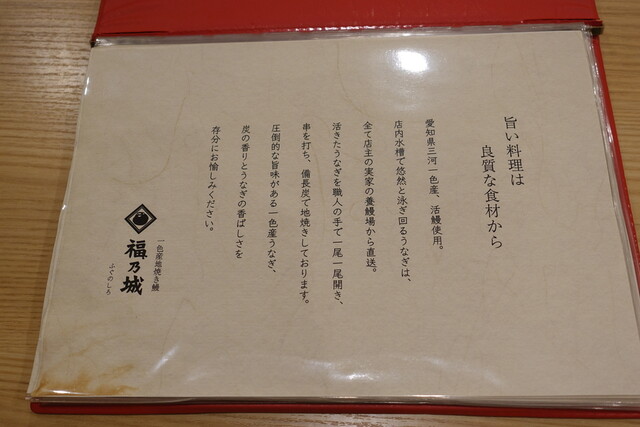 旨い料理は
良質な食材から
愛知県三河一色産、活鰻使用。
店内水槽で悠然と泳ぎ回るうなぎは、
全て店主の実家の養鰻場から直送。
活きたうなぎを職人の手で一尾一尾開き、
串を打ち、備長炭で地焼きしております。
圧倒的な旨味がある一色産うなぎ、
炭の香りとうなぎの香ばしさを
存分にお愉しみください。
一色産地焼き鰻
福乃城
ふくのしろ